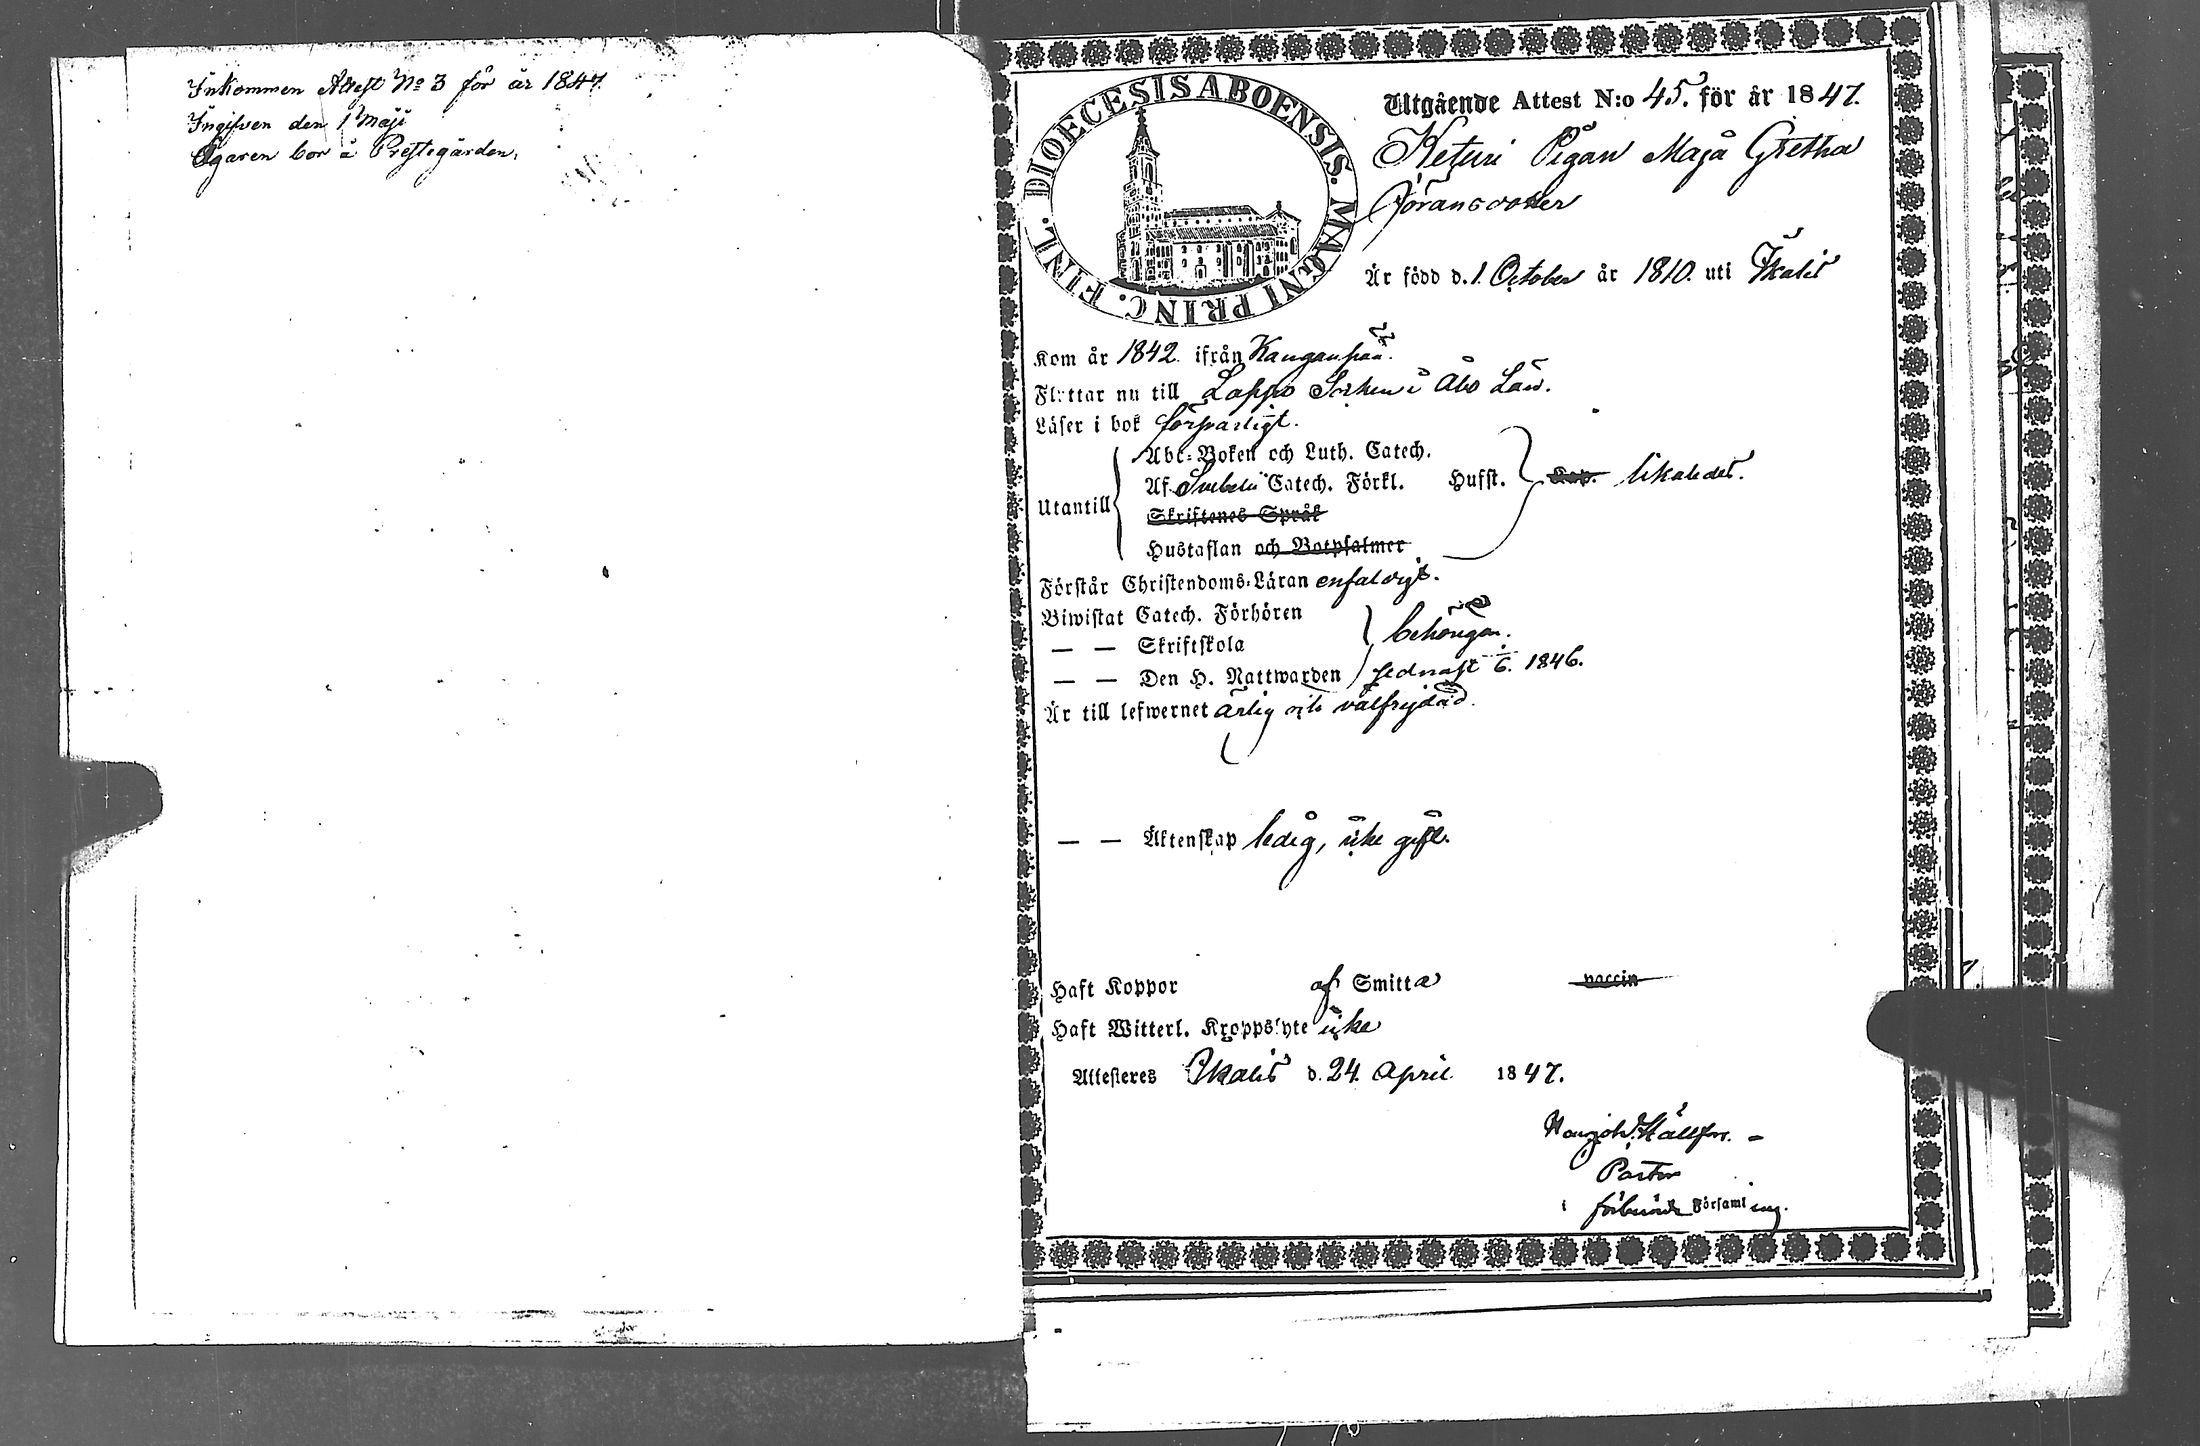 Inkommen Attest No 3 för år 1847.
Ingifven den 1 Maji
Ägaren bor å Prestegården.
DIOECESIS ABOENSIS. MAGNI PRINC. FINL.
Utgående Attest N:o 45. för år 1847.
Keturi Pigan Maja Gretha
Jöransdotter
Är född d. 1. October år 1810. uti Ikalis
Kom år 1842. ifrån Kanganpää.
Flyttar nu till Lappo Socken i Åbo Län.
Läser i bok försvarligt.
Utantill
Abc-Boken och Luth. Catech.
Af Svebelii Catech. Förkl. Hufst. Kap. likaledes.
Skriftenes Språk
Hustaflan och Botpsalmer
Förstår Christendoms-Läran enfaldigt.
Biwistat Catech. Förhören
— — Skriftskola behörigen.
— — Den H. Nattwarden sednast 6. 1846.
Är till lefwernet ärlig och välfrejdad.
— — Äktenskap ledig, icke gift.
Haft Koppor af Smitta vaccin
Haft Witterl. Kroppslyte icke
Attesteres Ikalis d. 24. April 1847.
Pastor
i förberörde Församling.